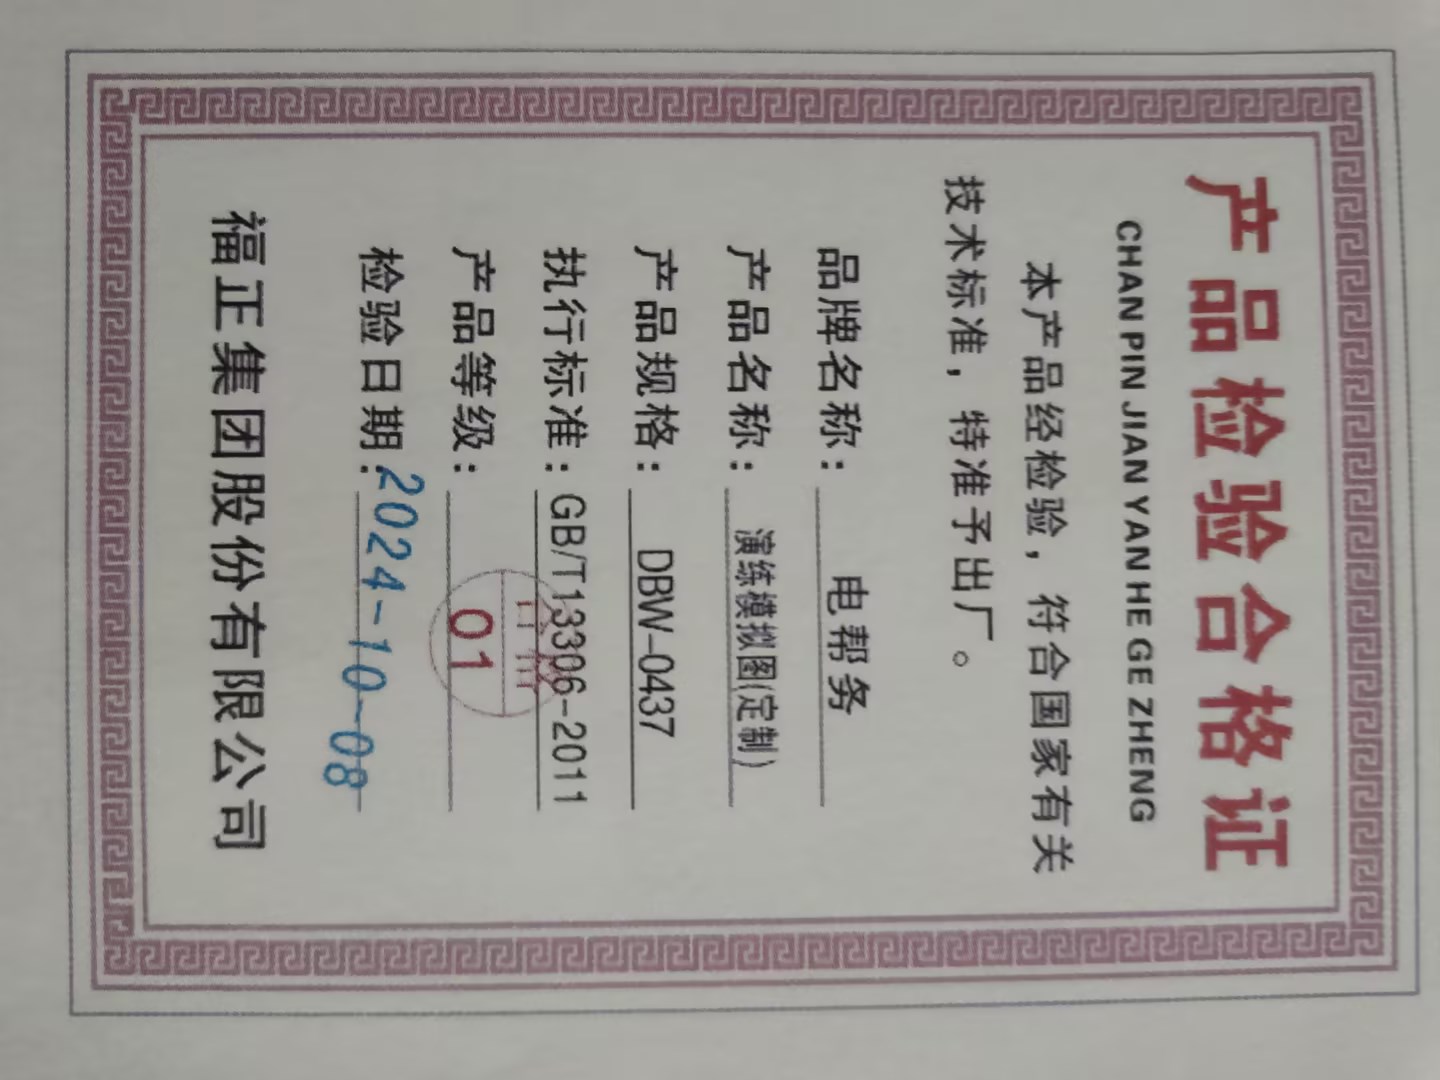 产品检验合格证
CHAN PIN JIAN YAN HE GE ZHENG
本产品经检验，符合国家有关
技术标准，特准予出厂。
品牌名称：电帮务
产品名称：演练模拟图(定制)
产品规格：DBW-0437
执行标准：GB/T13306-2011
产品等级：
合格
01
检验日期：2024-10-08
福正集团股份有限公司